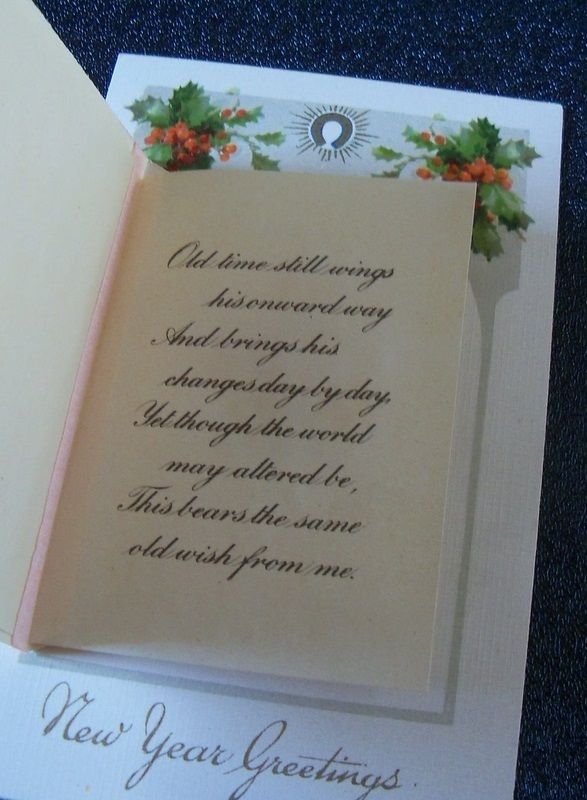 Old time still wings
his onward way
And brings his
changes day by day,
Yet though the world
may altered be,
This bears the same
old wish from me.
New Year Greetings.